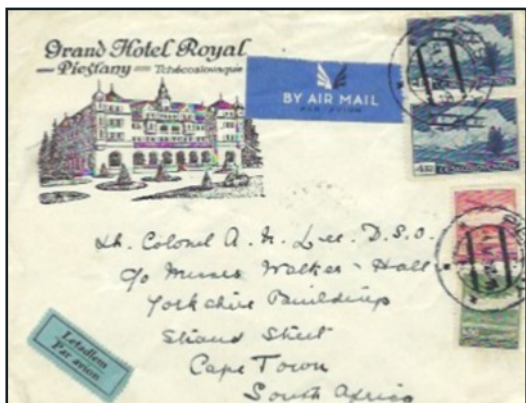 Grand Hotel Royal
Pieštany Tchécoslovaquie
BY AIR MAIL
PAR AVION
Lt. Colonel A. N. Lee. D.S.O.
c/o Messrs Walker & Hall
Yorkshire Buildings
Strand Street
Cape Town
South Africa
Letadlem
Par avion